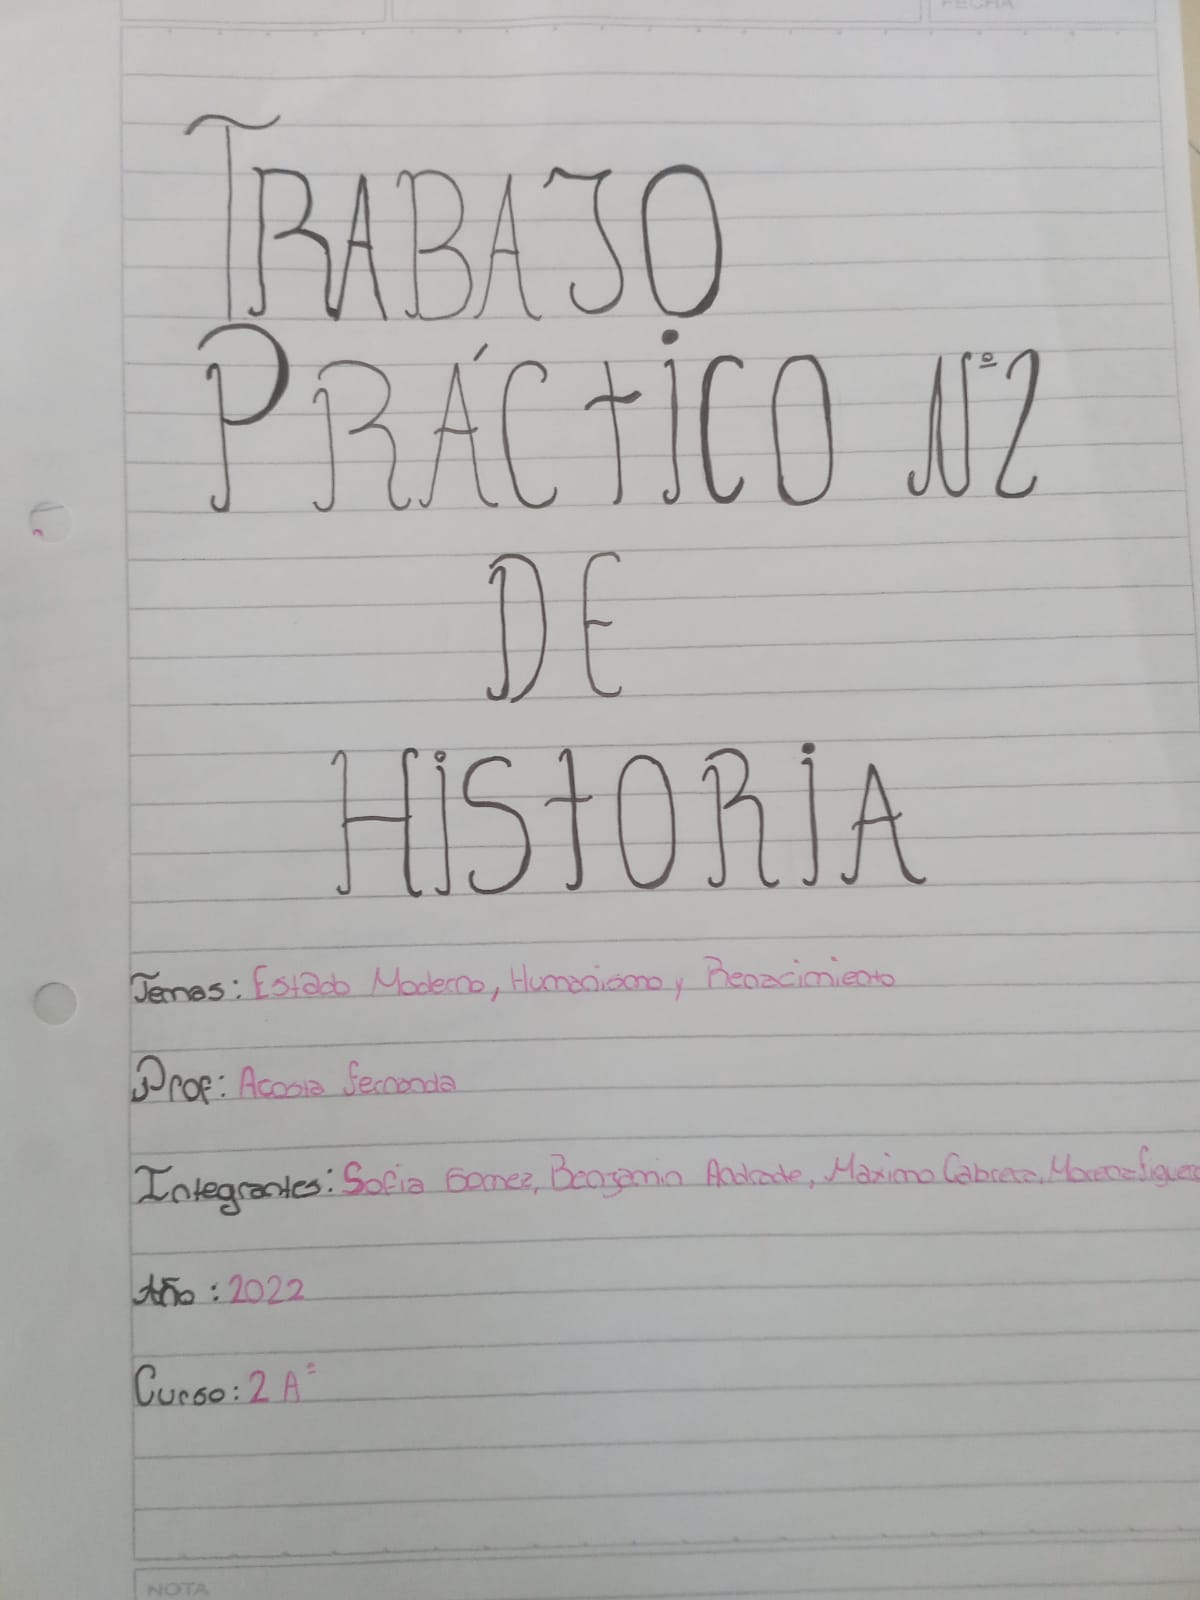 FECHA
TRABAJO
PRÁCTICO Nº2
DE
HISTORIA
Temas: Estado Moderno, Humanismo y Renacimiento
Prof: Acosta Fernanda
Integrantes: Sofia Gomez, Benjamin Andrade, Maximo Cabrera, Morena
Año: 2022
Curso: 2 A
NOTA